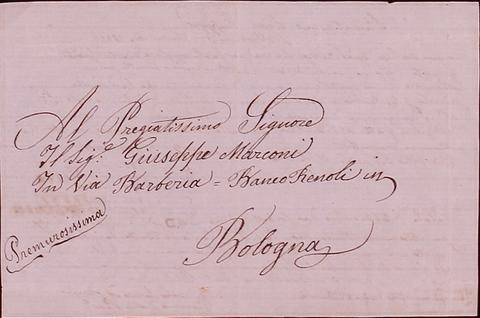 Al Pregiatissimo Signore
Il Sig.e Giuseppe Marconi
In Via Barberia = Banco Renoli in
Premurosissima
Bologna